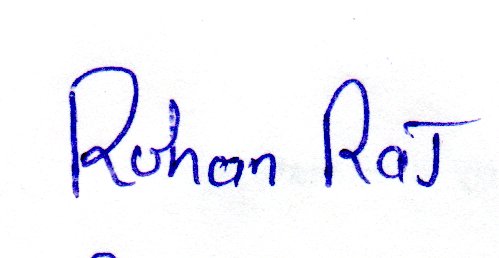 Rohan Raj